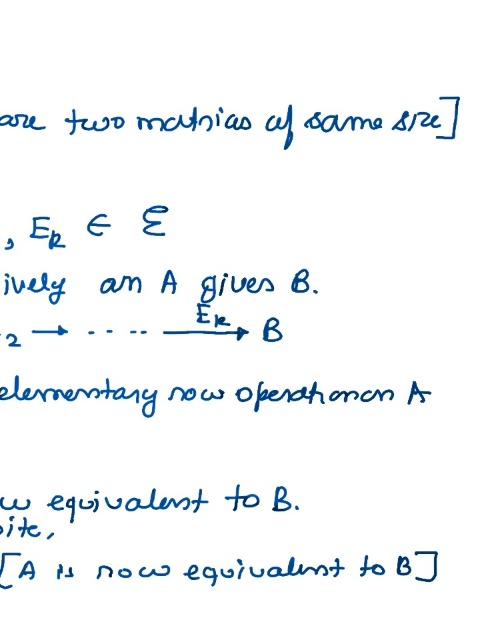 are two matrices of same size]
, E_k ∈ ℰ
ively on A gives B.
2 → ···· —E_k→ B
elementary row operation on A
w equivalent to B.
ite,
[A is row equivalent to B]